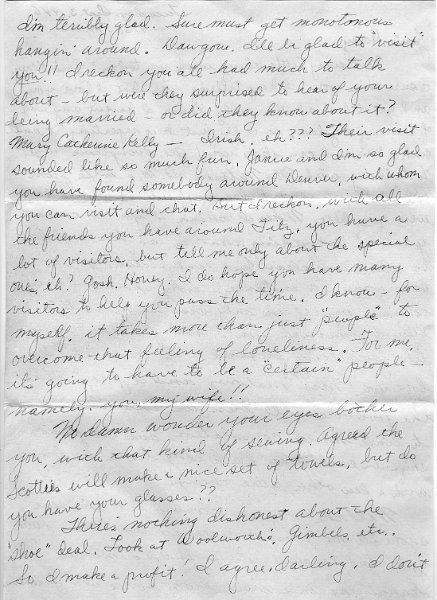 I'm terribly glad. Sure must get monotonous
hangin' around. Dawgone, I'll be glad to "visit"
you!! I reckon you all had much to talk
about – but were they surprised to hear of your
being married – or did they know about it?
Mary Catherine Kelly – Irish, eh??? Their visit
sounded like so much fun, Janie and I'm so glad
you have found somebody around Denver, with whom
you can visit and chat. But I reckon, with all
the friends you have around Fitz, you have a
lot of visitors, but tell me only about the special
ones, eh? Gosh, Honey. I do hope you have many
visitors to help you pass the time. I know – for
myself, it takes more than just "people" to
overcome that feeling of loneliness. For me,
it's going to have to be a "certain" people –
namely, you, my wife!!
No damn wonder your eyes bother
you, with that kind of sewing. Agreed the
Scotties will make a nice set of towels, but do
you have your glasses??
There's nothing dishonest about the
"shoe" deal. Look at Woolworth's, Gimbels, etc..
So I make a profit! I agree, darling, I don't